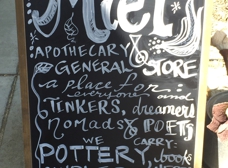 APOTHECARY &
GENERAL STORE
a place for
everyone and
TINKERS, dreamers
nomads & POETS
WE CARRY:
POTTERY, books